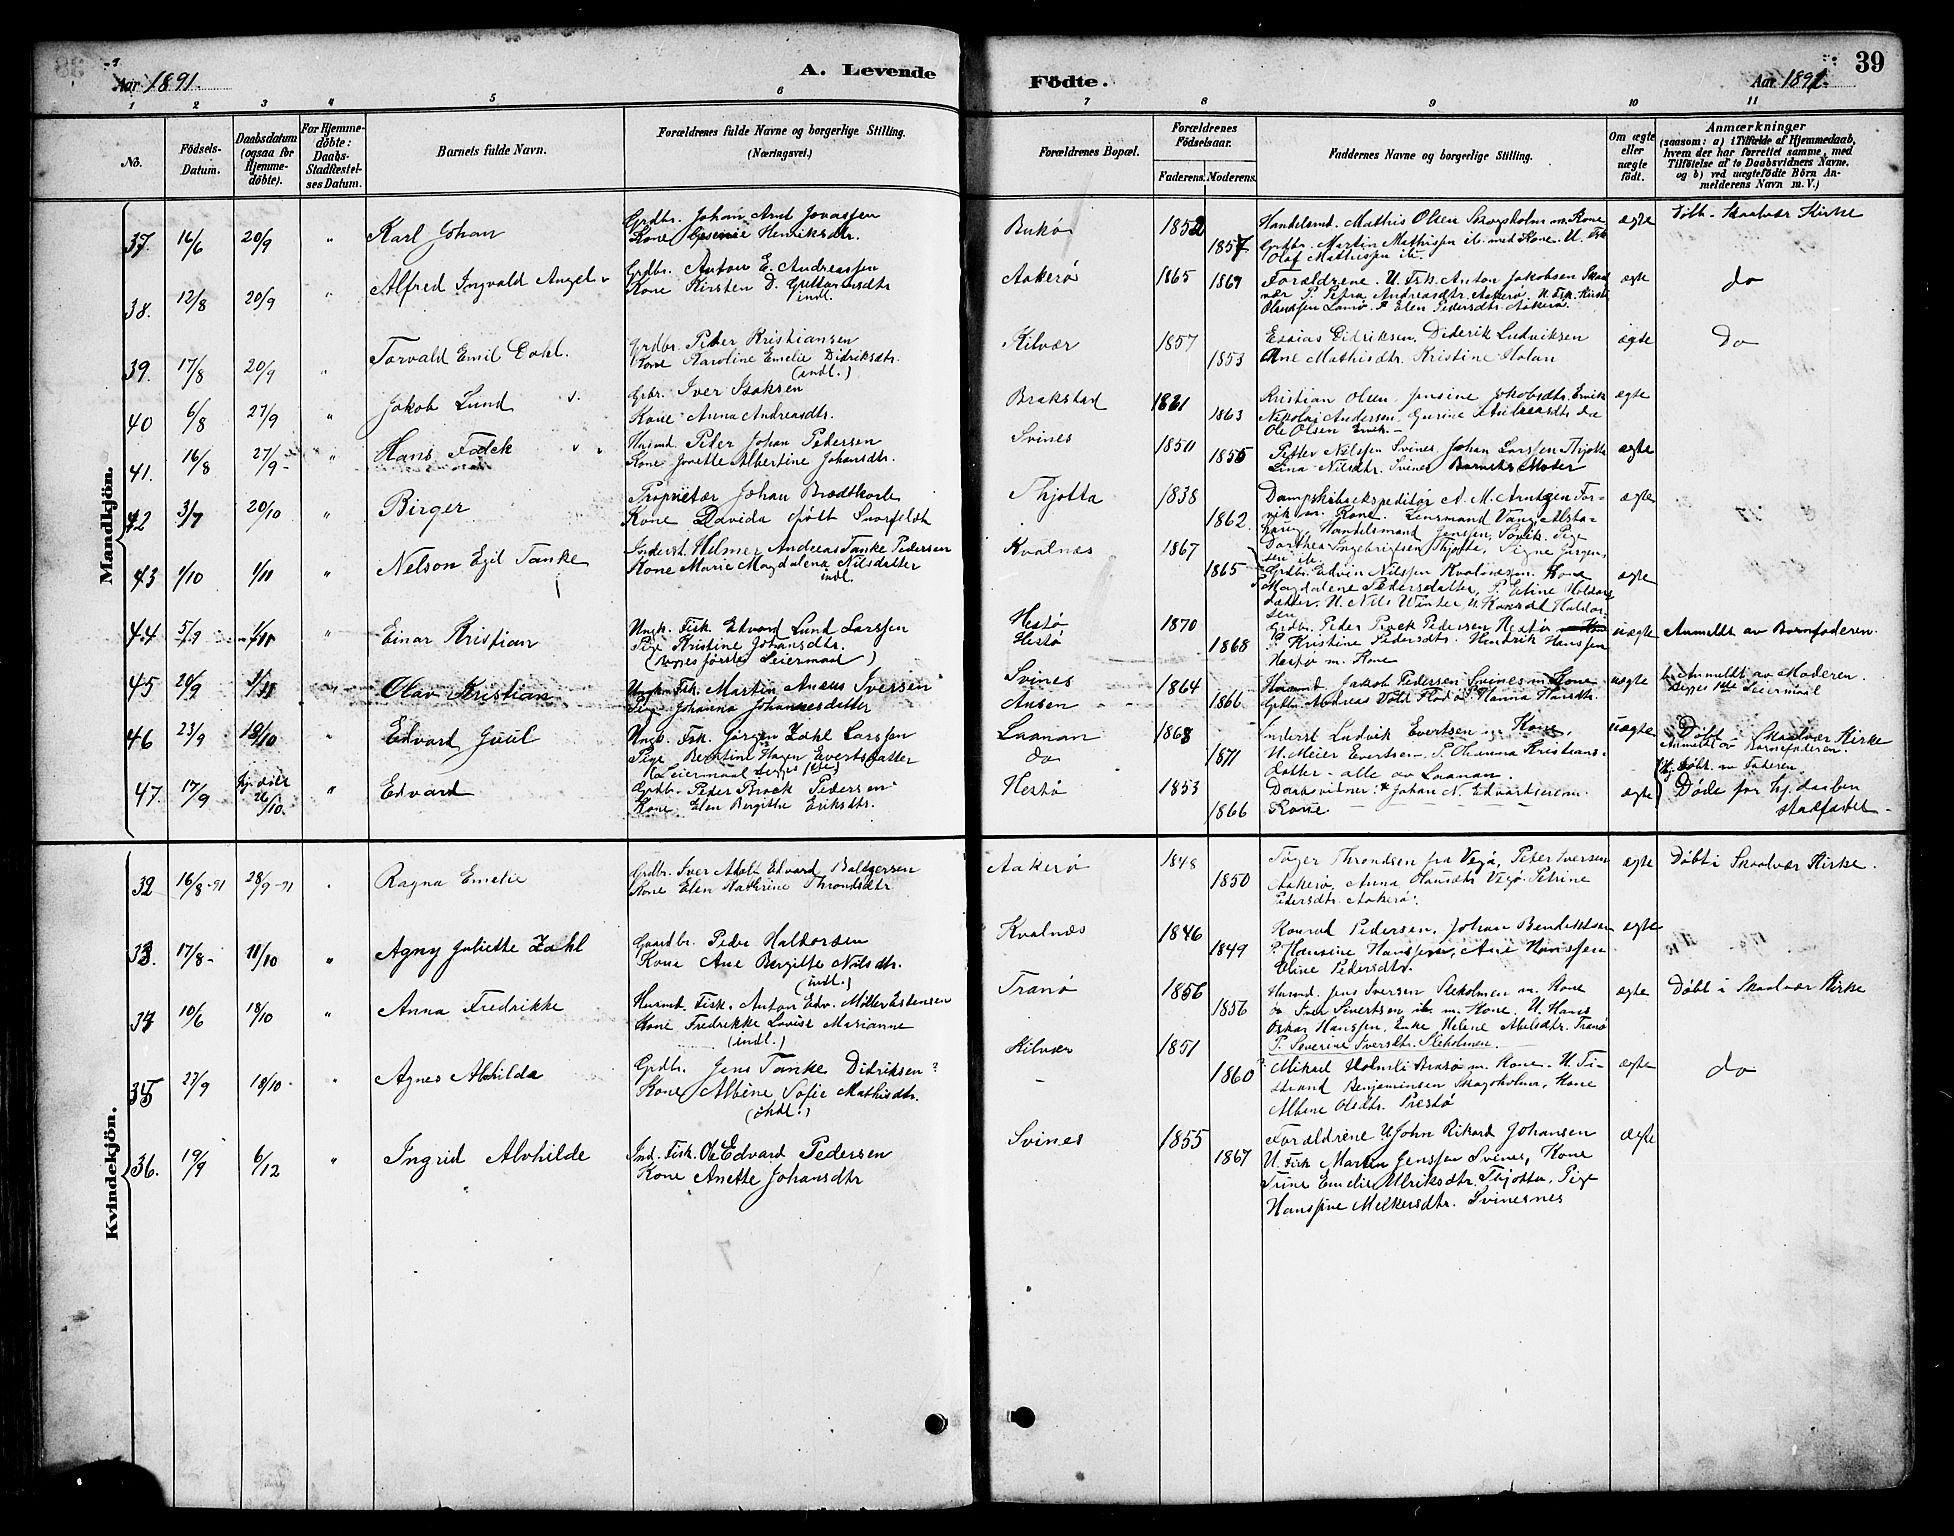 Aar 1891.
A. Levende
Födte.
Aar 1891.
39
1 2 3 4 5 6 7 8 9 10 11
No.
Födsels-Datum.
Daabsdatum (ogsaa for Hjemme-döbte).
For Hjemme-döbte: Daabs-Stadfæstel-ses Datum.
Barnets fulde Navn.
Forældrenes fulde Navne og borgerlige Stilling. (Næringsvei.)
Forældrenes Bopæl.
Forældrenes Födselsaar.
Faderens. Moderens.
Faddernes Navne og borgerlige Stilling.
Om ægte eller uægte födt.
Anmærkninger
(saasom: a) i Tilfælde af Hjemmedaab, hvem der har forrettet samme, med Tilföielse af to Daabsvidners Navne. og b) ved uægtefödte Börn An-melderens Navn m. V.)
Mandkjön.
37. 16/6 20/9 " Karl Johan
Grdbr. Johan Arnt Jonassen
Kone Henriksdtr.
Bukø 1852 1857
Handelsmd. Mathis Olsen Skogsholm m. Kone
Grdbr. Martin Mathissen ib. med Kone. U. Fsk
Olaf Mathissen ib.
ægte
Døbt. Skaalvær Kirke
38. 12/8 20/9 " Alfred Ingvald Angel
Grdbr. Anton E. Andreassen
Kone Kirsten D.
indl.
Aakerø 1865 1869
Forældrene. U. Fsk. Anton Jakobsen Skaal
vær P. Petra Andreasdtr. Aakerø. U. Fsk.
Lamø. P. Elen Pedersdtr. Aakerø.
ægte
do
39. 17/8 20/9 " Torvald Emil Dahl.
Grdbr. Peter Kristiansen
Kone Karoline Emelie Didriksdtr.
(indl.)
Kilvær 1857 1853
Esaias Didriksen, Diderik Ludviksen
Ane Mathisdtr. Kristine Holan
ægte
do
40 6/8 27/9 " Jakob Lund
Grbr. Iver Isaksen
Kone Anna Andreasdtr.
Brakstad 1861 1863
Kristian Olsen Jensine Jakobsdtr. Ervik
Nikolai Andersen do
Ole Olsen Ervik.
ægte
41. 16/8 27/9 " Hans Falck
Husmd. Peter Johan Pedersen
Kone Jonette Albertine Johansdtr.
Svines 1850 1855
Petter Nilssen Svines Johan Larssen Thjotta
Lina Nilsdtr. Svines Barnets Moder
ægte
42 3/7 20/10 " Birger
Proprietær Johan Brodtkorb
Kone Davida født
Thjotta 1838 1862.
Dampskibsekspeditør A. M. Arntzen For-
vik m. Kone. Lensmand Vang Alsta-
haug, Handelsmand Jenssen, Søvik. Pige
Dorthea Ingebrigtsen Thjotta, Signe Jørgen-
sen ib.
ægte
43 1/10 1/11 " Nelson Egil Tanke
Inderst. Helmer Andreas Tanke Pedersen
Kone Marie Magdalena Nilsdatter
indl.
Kvalnæs 1867 1865
Grdbr. Edvin Nilssen Kvalnæs m. Kone
Magdalene Pedersdatter, P. Eline Haldors
datter. U. Nils Winter U. Konrad Haldor-
sen
ægte
44 5/9 1/11 " Einar Kristian
Ungk. Fsk. Edvard Lund Larssen
Pige Kristine Johansdtr.
(Begges første Leiermaal)
Hestø
Hestø
1870 1868
Grdbr. Peder Brock Pedersen Hestø
P. Kristine Pedersdtr. Hendrik Hanssen
Hestø m. Kone
uægte
Anmeldt av Barnefaderen.
45 20/9 1/11 " Olav Kristian
Ungk. Fsk. Martin Anæus Iversen
Pige Johanna Johannesdatter
Svines
Ansen
1864 1866
Husmd Jakob Pedersen Svines m. Kone
Grbr. Andreas Vold Hanna Hansdtr.
uægte
Anmeldt av Moderen.
Begges 1ste Leiermaal
46 23/9 18/10 " Edvard Juul
Ungk. Fsk. Jørgen Zahl Larssen
Pige Berntine Hagen Evertsdatter
(Leiermaal begges 1ste)
Laanan
do
1868 1871
Inderst Ludvik Evertsen m. Kone,
U. Meier Evertsen P. Hanna Kristians-
datter - alle av Laanan.
uægte
Døbt Skaalvær Kirke
Anmeldt av Barnefaderen.
47. 17/9 Hj. døbt 26/10. " Edvard
Grdbr. Peder Brock Pedersen
Kone Elen Bergitte Eriksdtr.
Hestø 1853 1866
Daabsvidner: Johan N. Edvardsen m.
Kone
ægte
Hj. døbt. av Faderen.
Døde før hj. daaben
stadfæstet -
Kvindekjön.
32 16/8-91 28/9-91 " Ragna Emelie
Grdbr. Iver Adolt Edvard Baltzersen
Kone Elen Kathrine Throndsdtr
Aakerø 1848 1850
Tøger Throndsen fra Vegø, Peter Iversen
Aakerø, Anna Hansdtr Vegø. Petrine
Pedersdtr. Aakerø.
ægte
Døbt i Skaalvær Kirke.
33. 17/8- 11/10 " Agny Juliette Zahl
Gaardbr. Peder Haldorsen
Kone Ane Bergitte Nilsdtr.
(indl.)
Kvalnæs 1846 1849
Konrad Pedersen, Johan Bendiktsen
P. Hansine Hanssen, Ane Hanssen
Eline Pedersdtr.
ægte
34 10/6 18/10 " Anna Fredrikke
Husmd Fisk. Anton Edv. Møller Estensen
Kone Fredrikke Lovise Marianne
(indl.)
Tranø 1856 1856
Husmd. Jens Iversen Stekolmen m. Kone
og Iver Sivertsen ib. m. Kone. U. Hans
Oskar Hanssen, Enke Helene Abelsdtr. Tranø
P. Severine Iversdtr. Stekolmen.
ægte
Døbt i Skaalvær Kirke
35 27/9 18/10 - " Agnes Alvhilda
Grdb. Jens Tanke Didriksen
Kone Albine Sofie Mathisdtr.
(indl.)
Kilvær 1851 1860
Mikael Holmli Brasø m. Kone. U. Ti-
strand Benjaminsen Skogsholm, Kone
Albine Olsdtr. Prestø
ægte
do
36. 19/9 6/12 " Ingrid Alvhilde
Ind. Fisk. Ole Edvard Pedersen
Kone Anette Johansdtr
Svines 1855 1867
Forældrene U John Rikard Johansen
U. Fisk Martin Jenssen Svines, Kone
Trine Emelie Ulriksdtr. Thjotta, Pige
Hanssine Melkersdtr. Svinesnes
ægte